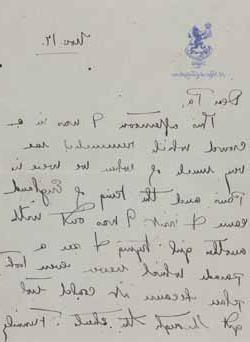 Nov. 17.
Dear Pa,
This afternoon I was in a
crowd which reminded me
very much of when we were in
Paris and the King of England
came. I went out with
another girl trying to see a
parade which never even took
place because it could not
get through the street. Finally